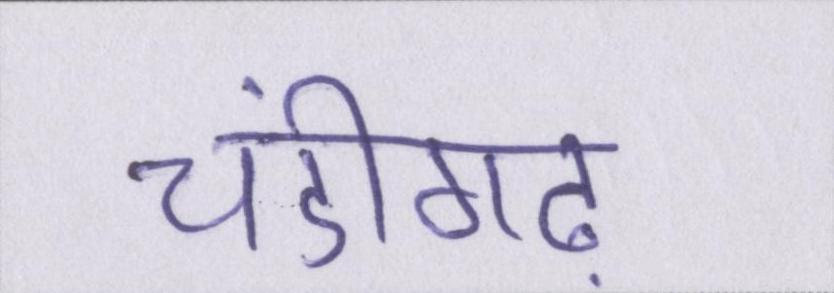 चंडीगढ़